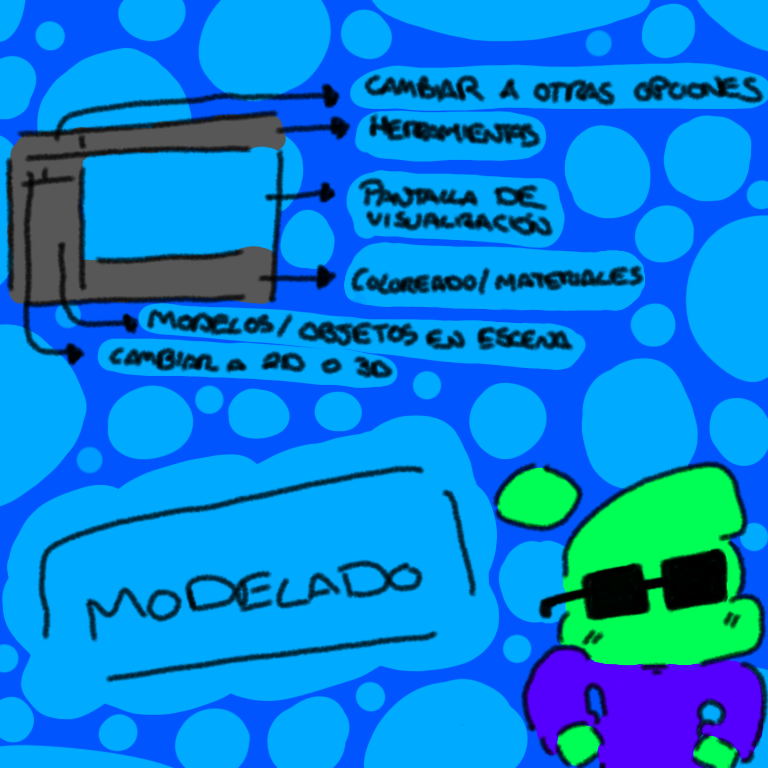 CAMBIAR A OTRAS OPCIONES
HERRAMIENTAS
PANTALLA DE
VISUALIZACIÓN
COLOREADO/MATERIALES
MODELOS/OBJETOS EN ESCENA
CAMBIAR A 2D O 3D
MODELADO